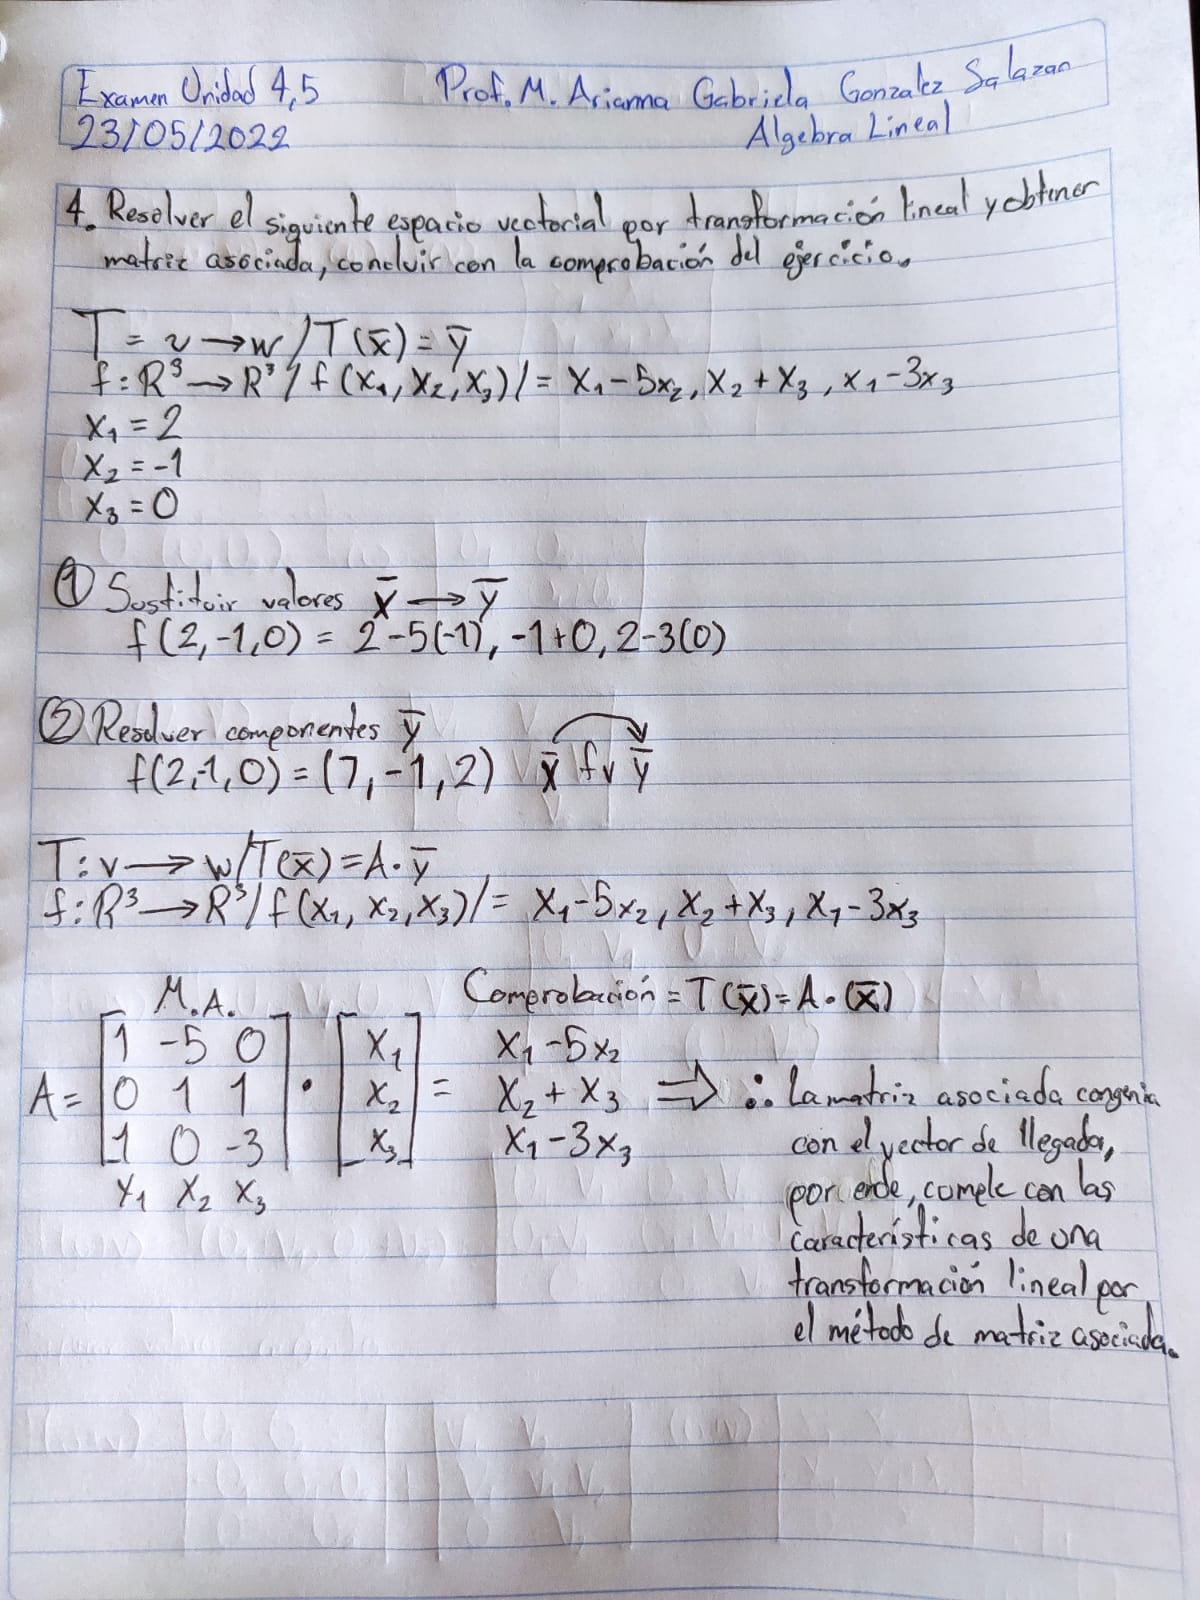 Examen Unidad 4,5 Prof. M. Arianna Gabriela Gonzalez Salazar
23/05/2022 Algebra Lineal
4. Resolver el siguiente espacio vectorial por transformación lineal y obtener
matriz asociada, concluir con la comprobación del ejercicio.
T = v → w / T(x̄) = ȳ
f: R³ → R³ / f(x₁, x₂, x₃) / = x₁ - 5x₂, x₂ + x₃, x₁ - 3x₃
x₁ = 2
x₂ = -1
x₃ = 0
① Sustituir valores x̄ → ȳ
f(2, -1, 0) = 2 - 5(-1), -1 + 0, 2 - 3(0)
② Resolver componentes ȳ
f(2, -1, 0) = (7, -1, 2) x̄ fv ȳ
T: v → w / T(x̄) = A · ȳ
f: R³ → R³ / f(x₁, x₂, x₃) / = x₁ - 5x₂, x₂ + x₃, x₁ - 3x₃
M.A. Comprobación = T(x̄) = A · (x̄)
[1 -5 0] [x₁] x₁ - 5x₂
A = [0 1 1] · [x₂] = x₂ + x₃ ⇒ ∴ La matriz asociada congenia
[1 0 -3] [x₃] x₁ - 3x₃ con el vector de llegada,
x₁ x₂ x₃ por ende, cumple con las
características de una
transformación lineal por
el método de matriz asociada.